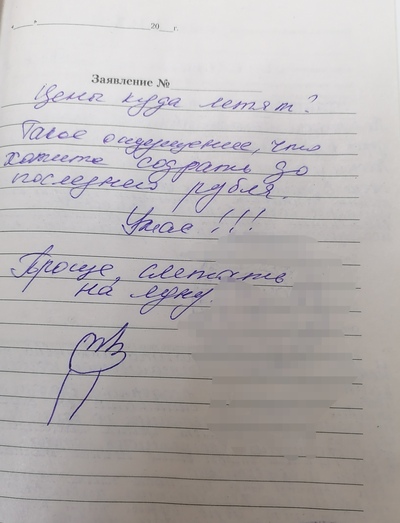 «___» ____________ 20___ г.
Заявление №
Цены куда летят?
Такое ощущение, что
хотите содрать до
последнего рубля.
Ужас !!!
Проще, слетать
на луну.